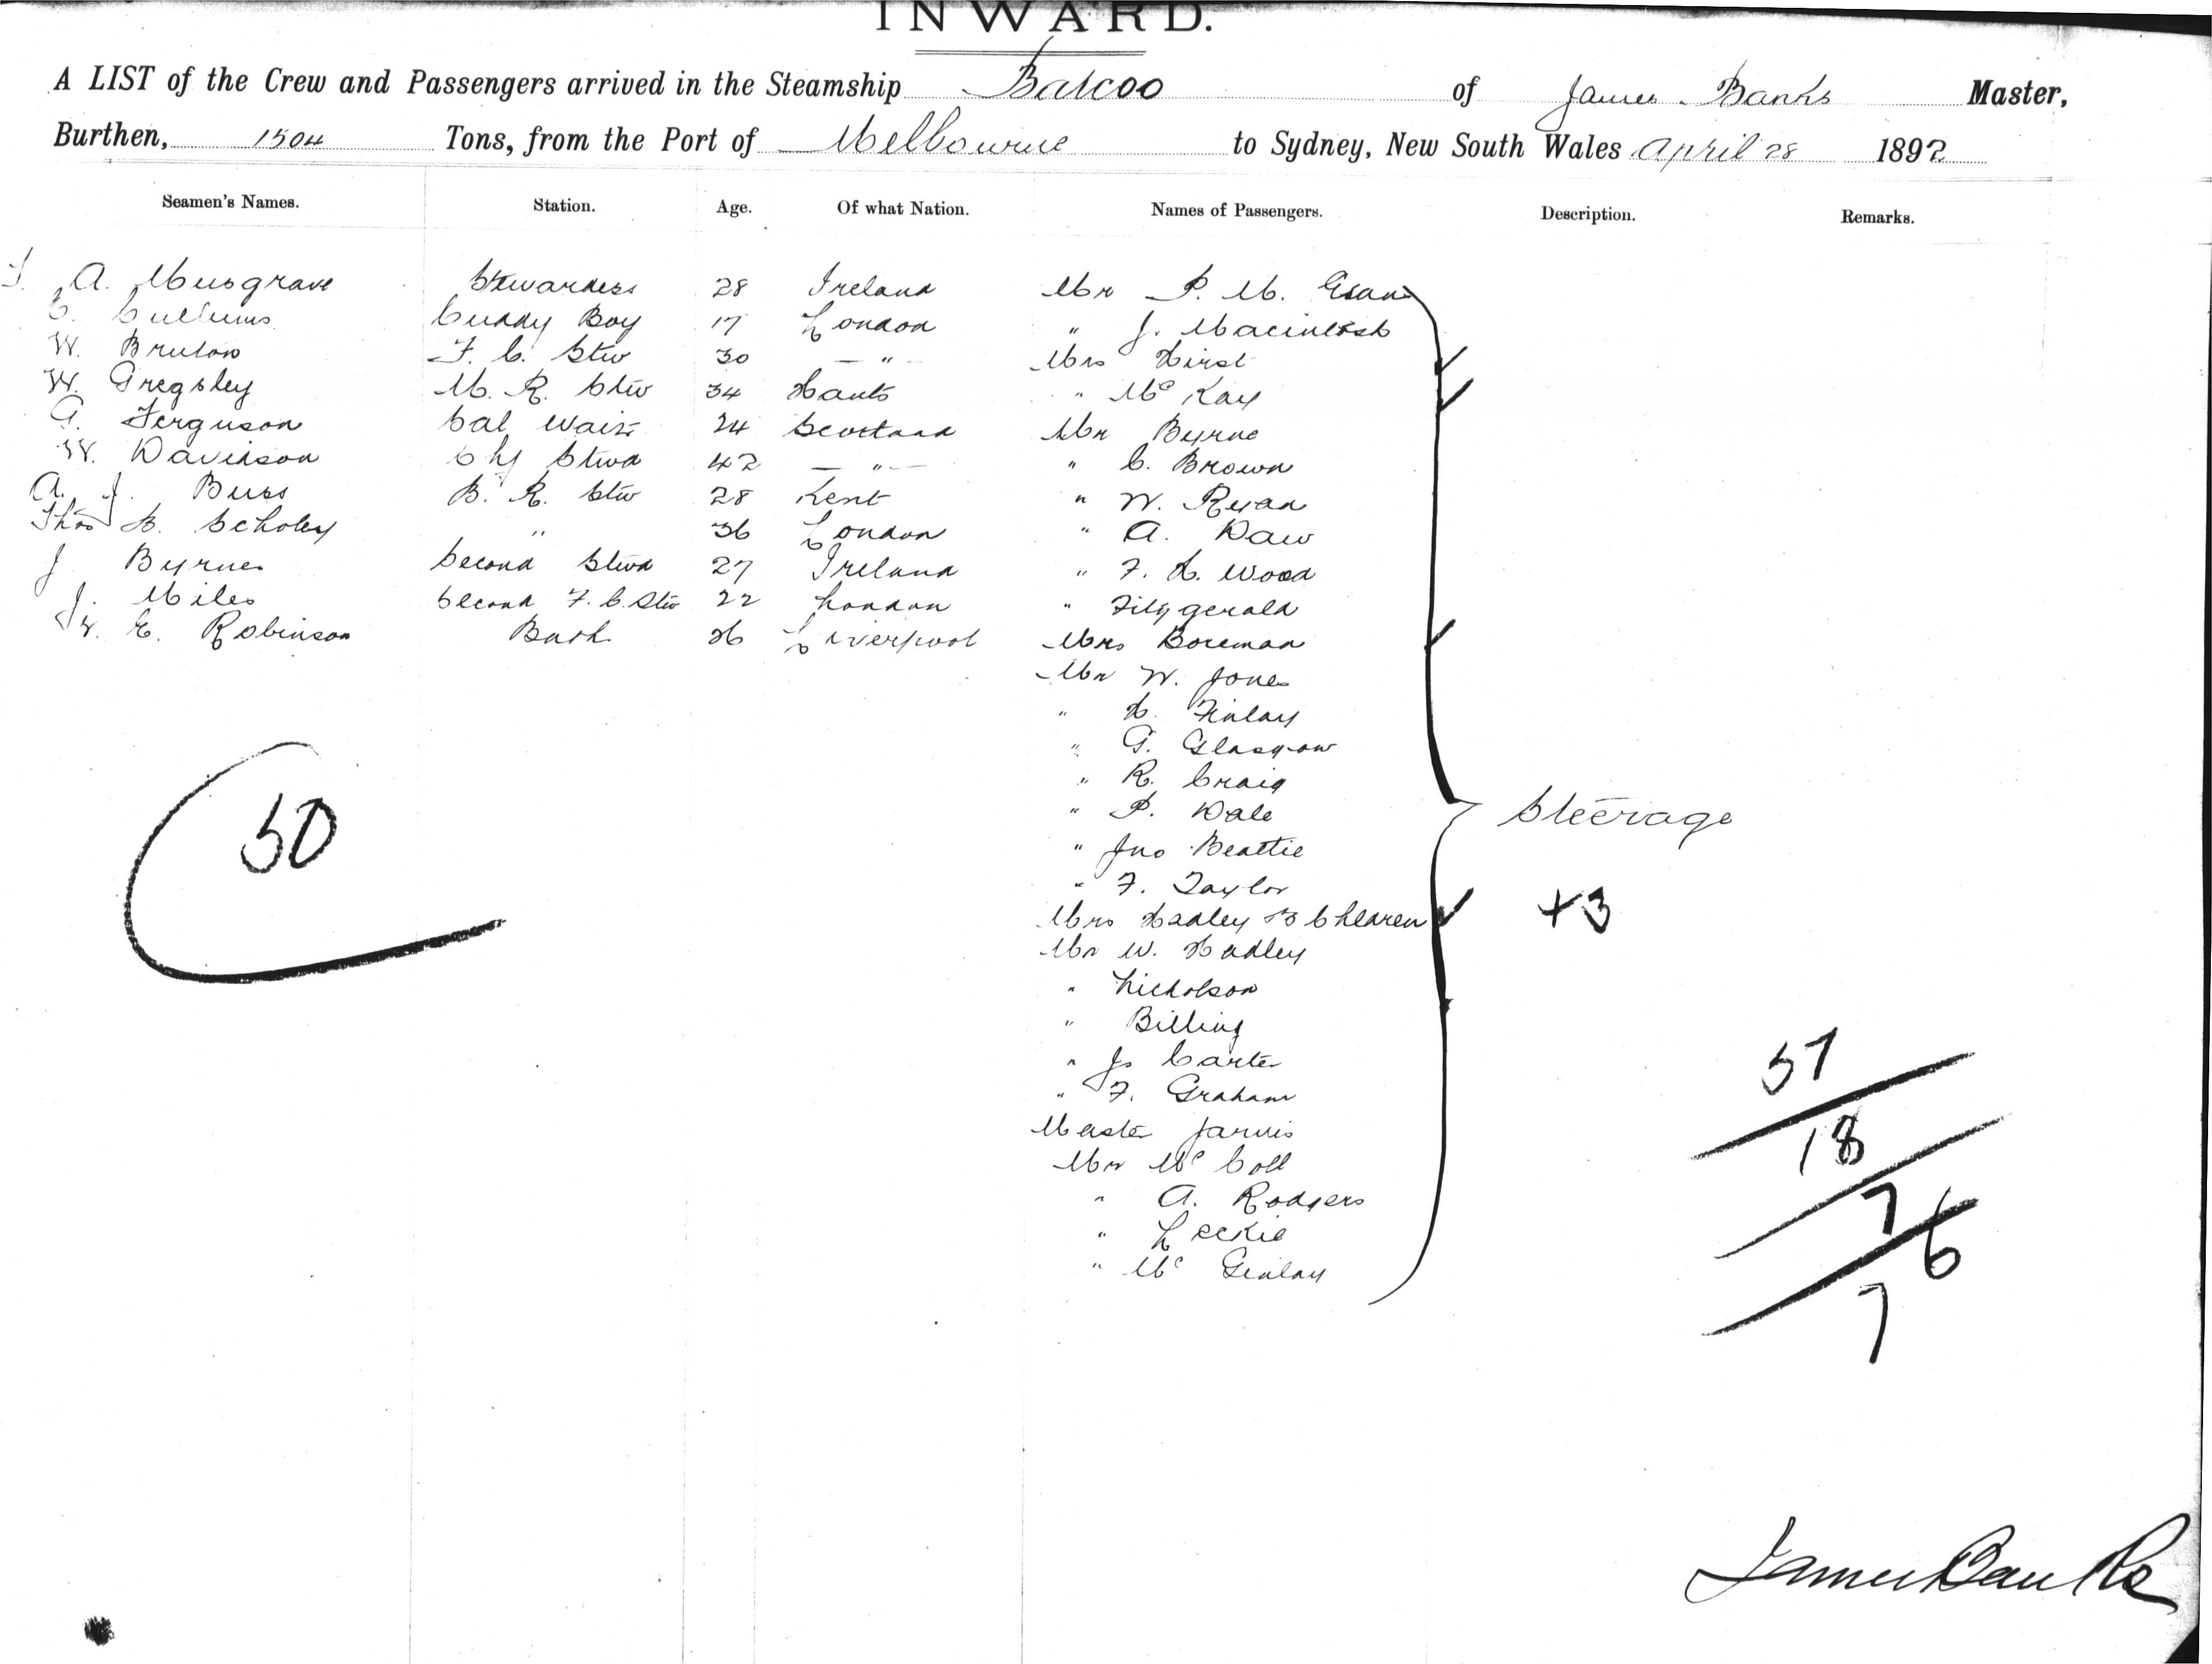 INWARD.
A LIST of the Crew and Passengers arrived in the Steamship Barcoo of James Banks Master,
Burthen, 1504 Tons, from the Port of Melbourne to Sydney, New South Wales April 28 1892
Seamen's Names. Station. Age. Of what Nation. Names of Passengers. Description. Remarks.
A. Musgrave Stewardess 28 Ireland Mr P. M. Gran
Cullums Cuddy Boy 17 London " J. Macintosh
W. Bruton F. C. Stw 30 — " — Mrs Hirst
W. Gregsley M. R. Stw 34 Hants " Mc Kay
G. Ferguson Sal Wait 24 Scotland Mr Byrne
W. Davidson Chf Stwd 42 — " — " C. Brown
A. J. Buss B. R. Stw 28 Kent " W. Ryan
Thos S. Scholey " 36 London " A. Daw
J Byrnes Second Stwd 27 Ireland " F. H. Wood
J. Miles Second F. C. Stw 22 London " Fitzgerald
E. Robinson Bath 26 Liverpool Mrs Boreman
Mr W. Jones
" H. Finlay
" G. Glasgow
" R. Craig
" P. Dale
Steerage
50
" Jno Beattie
" F. Taylor
Mrs Hadley & 3 Chldren +3
Mr W. Hadley
" Nicholson
" Billing
" Js Carter
" F. Graham
57
Master Jarvis
18
Mr Mc Coll
" A. Rodgers
7
" Leckie
6
" Mc Ginlay
7
James Banks